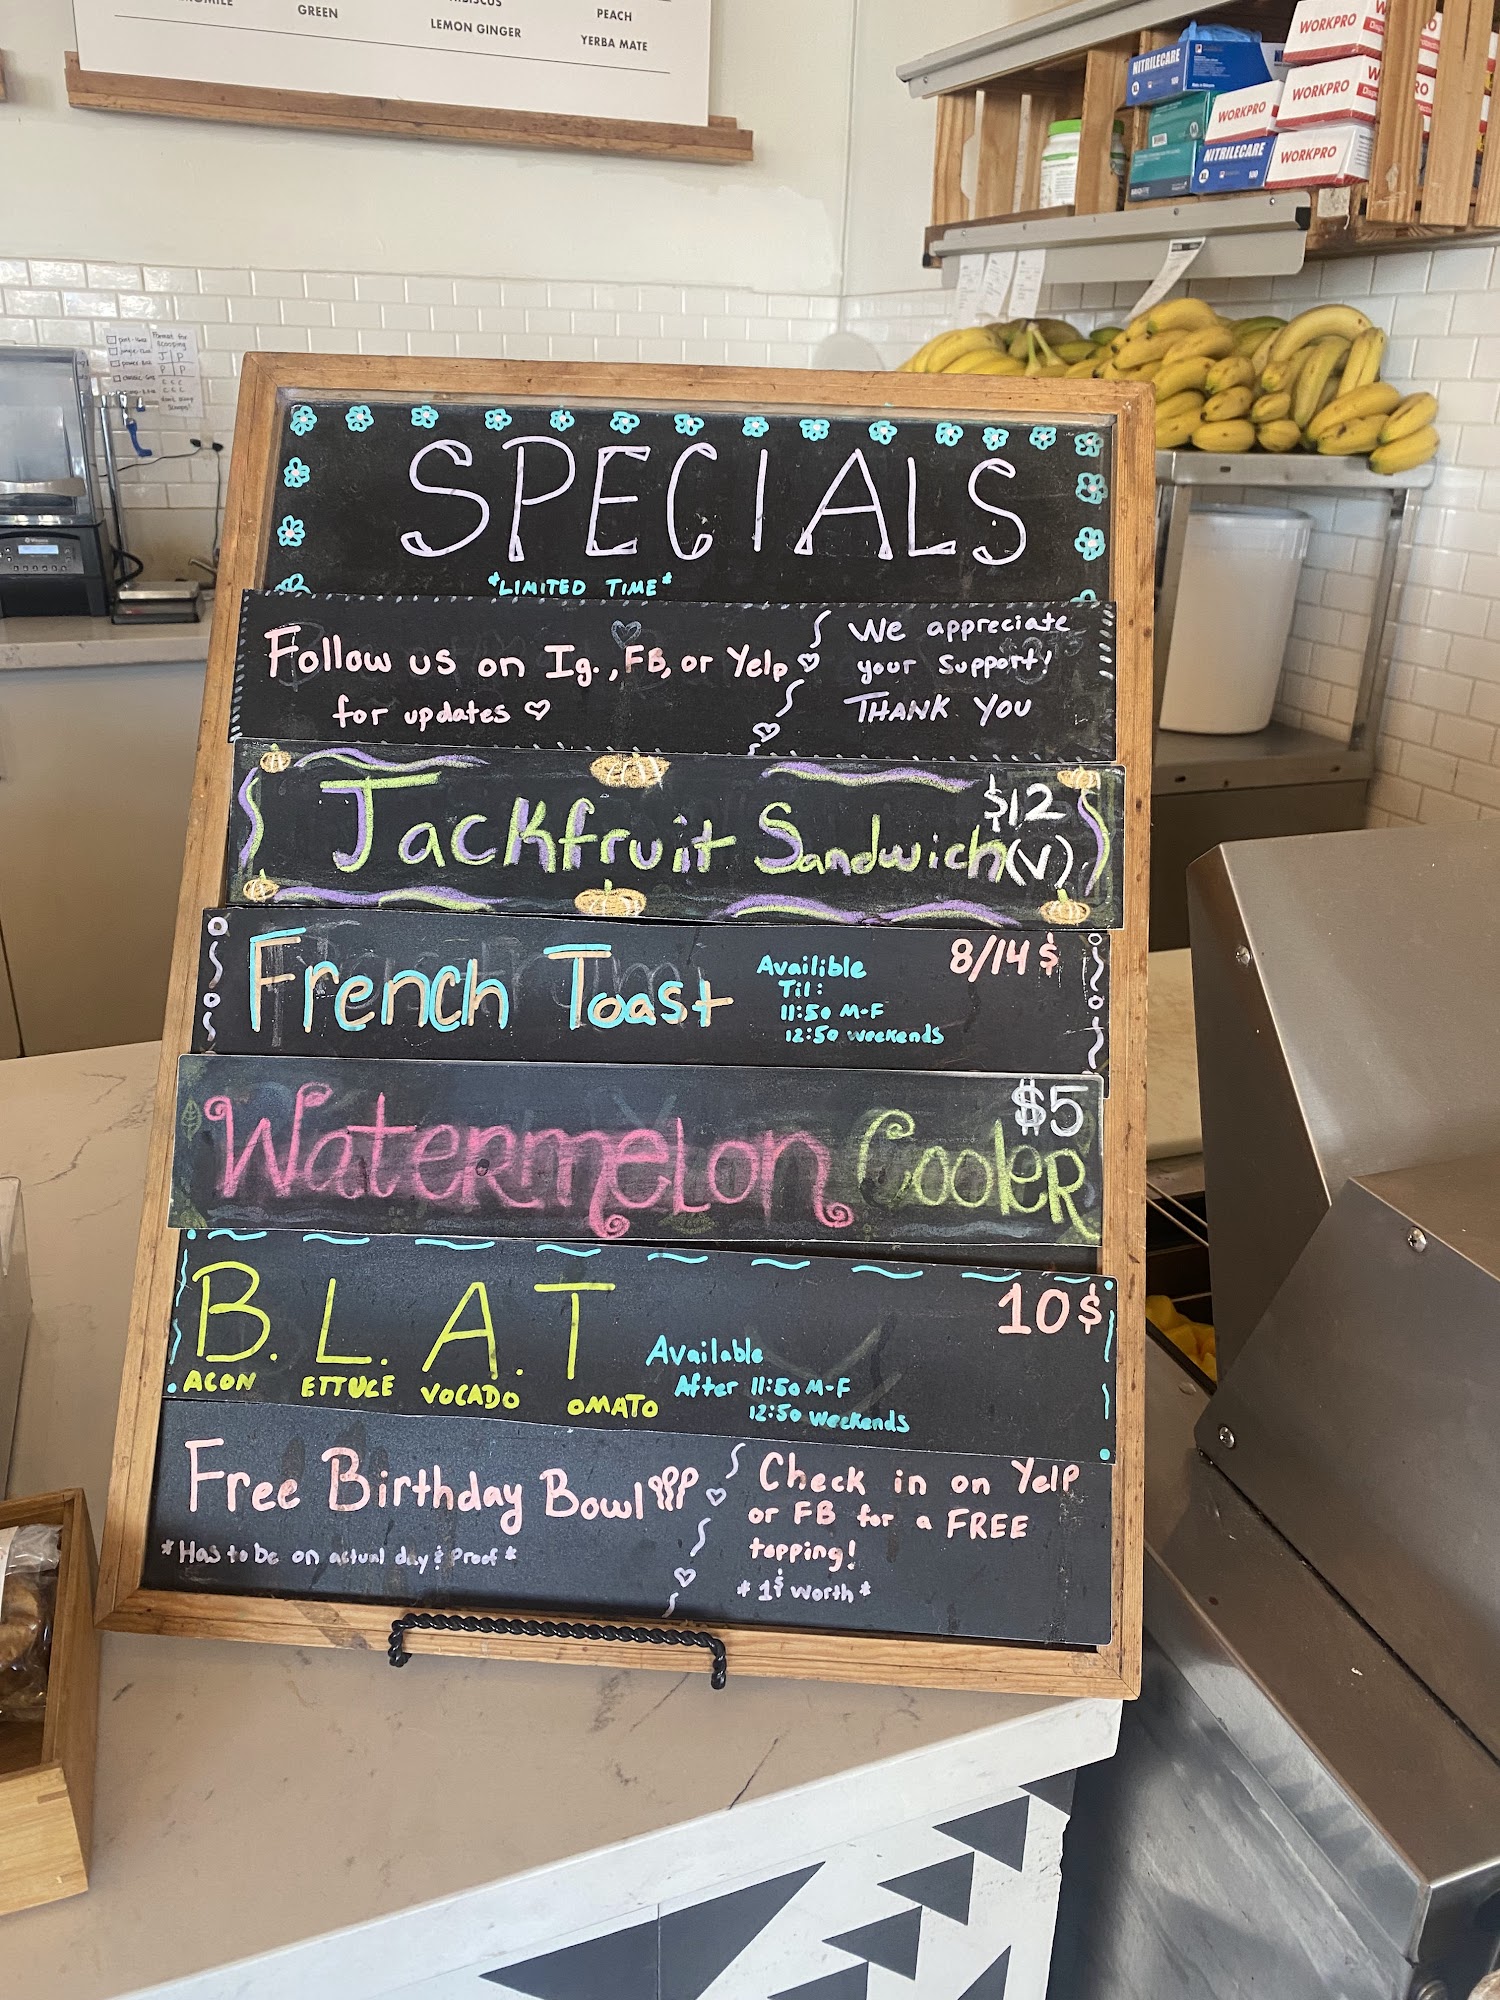 GREEN
LEMON GINGER
PEACH
YERBA MATE
NITRILECARE
WORKPRO
WORKPRO
WORKPRO
NITRILECARE
WORKPRO
SPECIALS
*LIMITED TIME*
Follow us on Ig., FB, or Yelp
for updates
We appreciate
your support!
THANK YOU
Jackfruit Sandwich
$12
(V)
French Toast
Availible
Til:
11:50 M-F
12:50 weekends
8/14 $
Watermelon Cooler
$5
B. L. A. T
ACON ETTUCE VOCADO OMATO
Available
After 11:50 M-F
12:50 weekends
10$
Free Birthday Bowl
*Has to be on actual day & Proof*
Check in on Yelp
or FB for a FREE
topping!
*1$ worth*